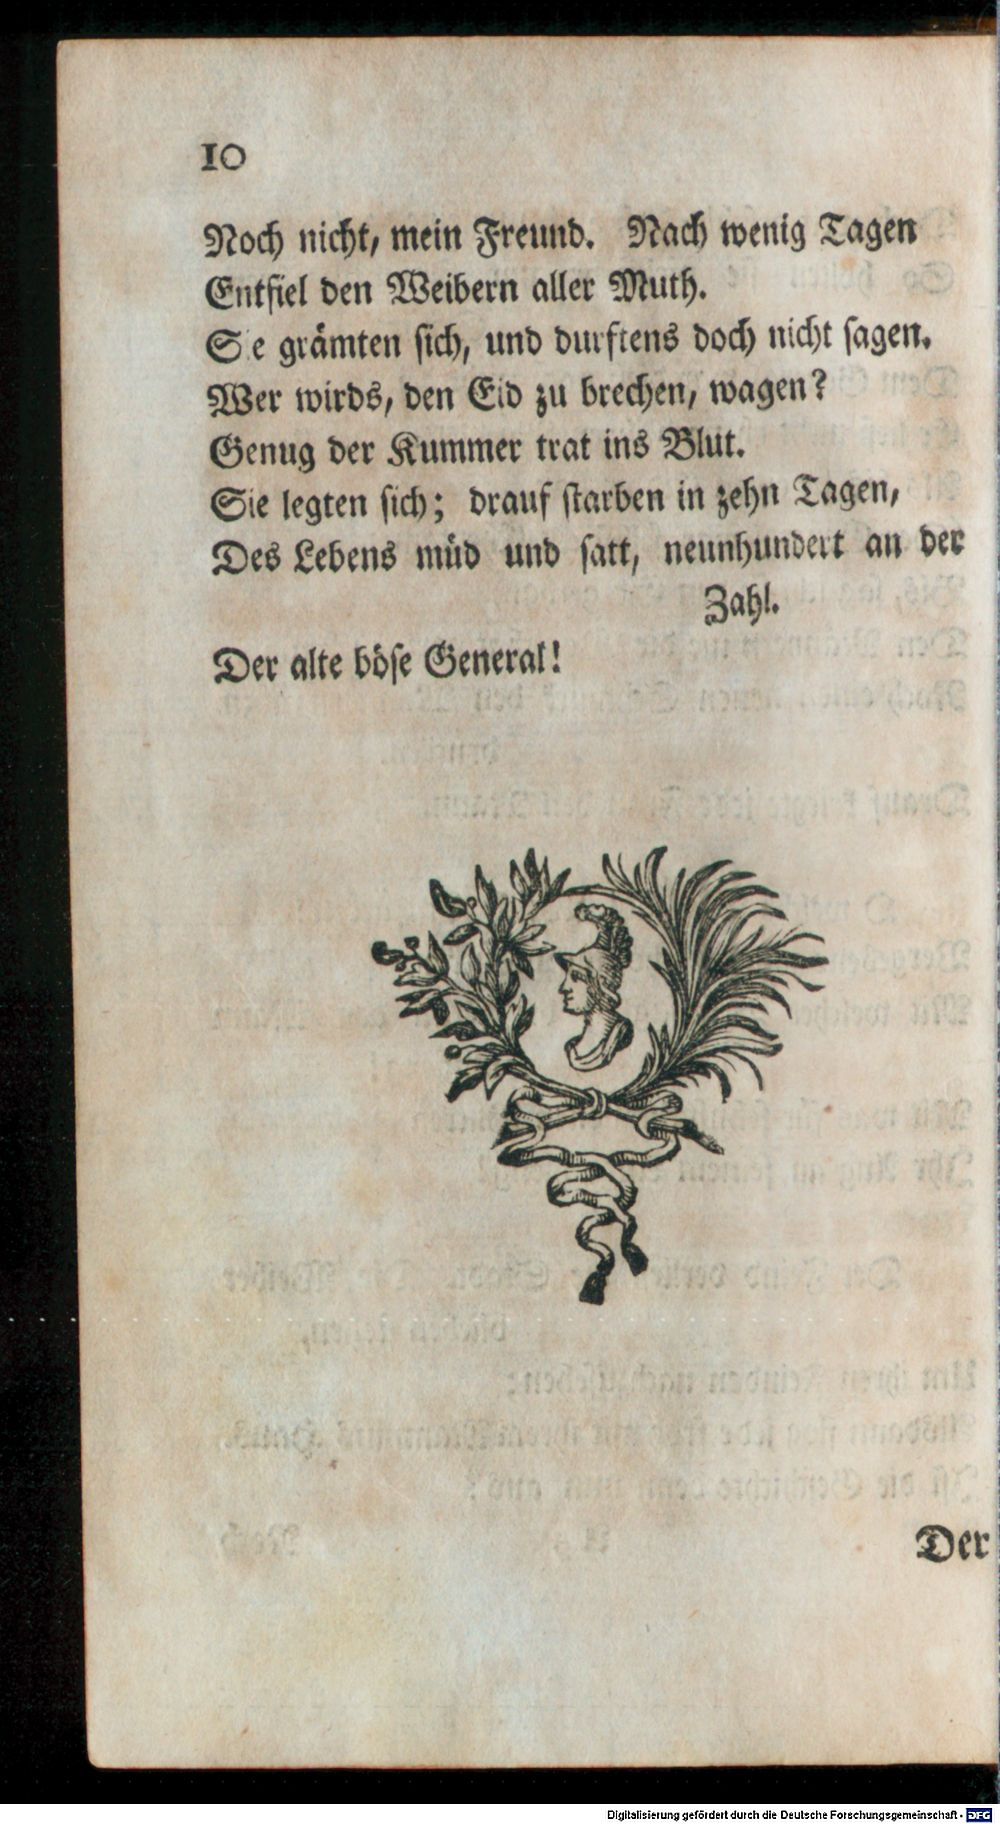 10
Noch nicht, mein Freund. Nach wenig Tagen
Entfiel den Weibern aller Muth.
Sie grämten sich, und durftens doch nicht sagen.
Wer wirds, den Eid zu brechen, wagen?
Genug der Kummer trat ins Blut.
Sie legten sich; drauf starben in zehn Tagen,
Des Lebens müd und satt, neunhundert an der
Zahl.
Der alte böse General!
Der
Digitalisierung gefördert durch die Deutsche Forschungsgemeinschaft - DFG